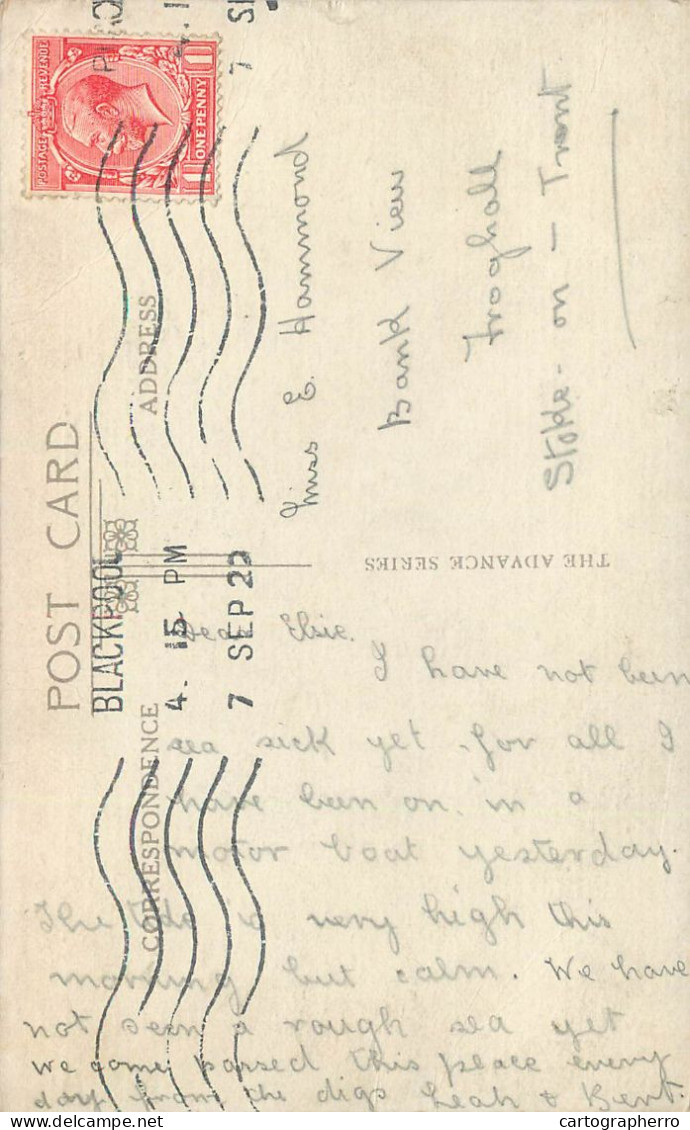 POST CARD
CORRESPONDENCE
ADDRESS
POSTAGE REVENUE
ONE PENNY
BLACKPOOL
4. 15 PM
7 SEP 22
THE ADVANCE SERIES
Miss E. Hammond
Bank View
Froghall
Stoke-on-Trent
Dear Elsie.
I have not been
sea sick yet for all I
have been on in a
motor boat yesterday.
The tide is very high this
morning but calm. We have
not seen a rough sea yet
we come passed this place every
day from the digs Leah & Bert.
delcampe.net
cartographerro